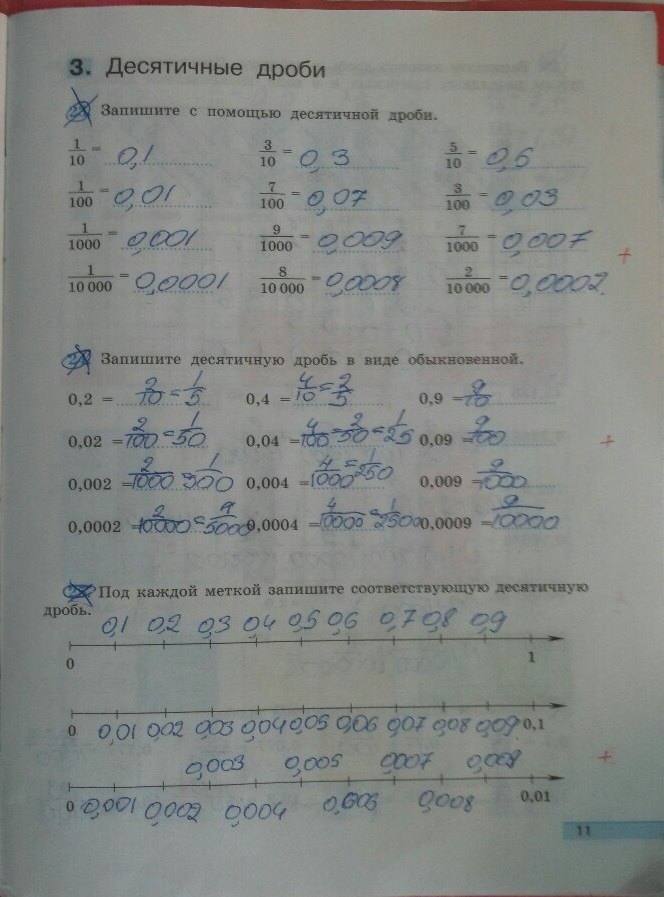 3. Десятичные дроби
Запишите с помощью десятичной дроби.
1/10 = 0,1 3/10 = 0,3 5/10 = 0,5
1/100 = 0,01 7/100 = 0,07 3/100 = 0,03
1/1000 = 0,001 9/1000 = 0,009 7/1000 = 0,007
1/10 000 = 0,0001 8/10 000 = 0,0008 2/10 000 = 0,0002
+
Запишите десятичную дробь в виде обыкновенной.
0,2 = 2/10 = 1/5 0,4 = 4/10 = 2/5 0,9 = 9/10
0,02 = 2/100 = 1/50 0,04 = 4/100 = 2/50 = 1/25 0,09 = 9/100 +
0,002 = 2/1000 = 1/500 0,004 = 4/1000 = 1/250 0,009 = 9/1000
0,0002 = 2/10000 = 1/5000 0,0004 = 4/10000 = 1/2500 0,0009 = 9/10000
Под каждой меткой запишите соответствующую десятичную
дробь.
0,1 0,2 0,3 0,4 0,5 0,6 0,7 0,8 0,9
0 1
0 0,01 0,02 0,03 0,04 0,05 0,06 0,07 0,08 0,09 0,1
0,003 0,005 0,007 0,009 +
0 0,001 0,002 0,004 0,006 0,008 0,01
11